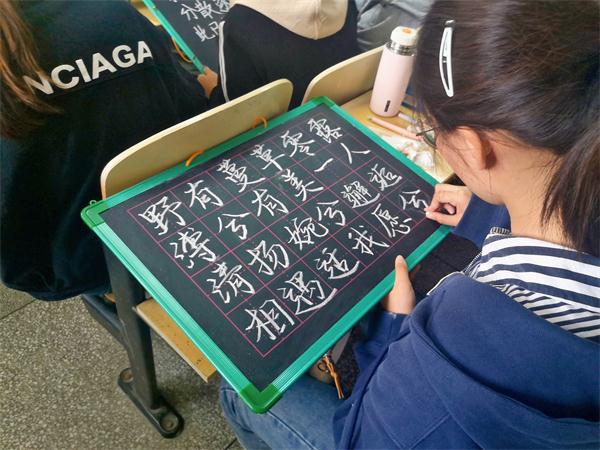 NCIAGA
分散逐
此已
野有蔓草零露
漙兮有美一人
清扬婉兮邂逅
相遇适我愿兮